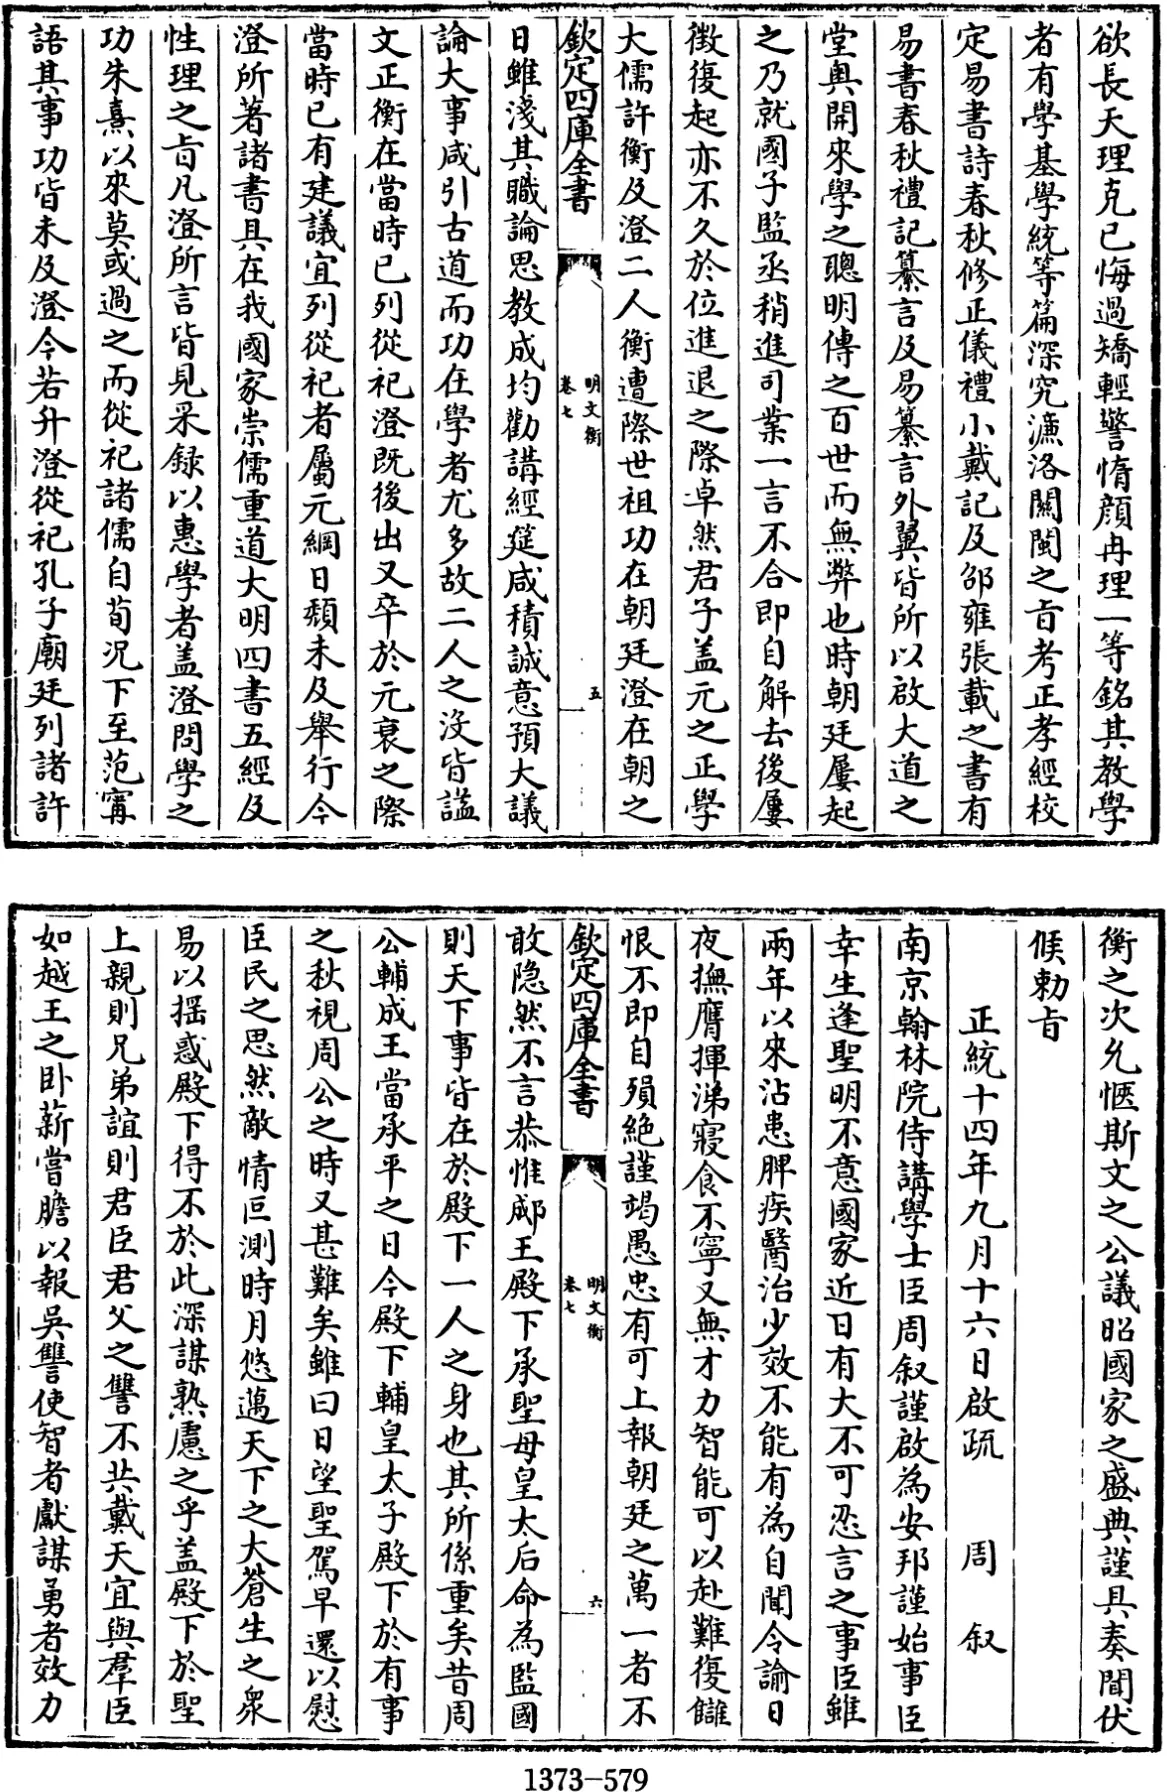 欲長天理克已悔過矯輕警惰顔冉理一等銘其教學
者有學基學統等篇深究濂洛關閩之旨考正孝經校
定易書詩春秋修正儀禮小戴記及邵雍張載之書有
易書春秋禮記纂言及易纂言外翼皆所以啟大道之
堂奥開來學之聰明傳之百世而無弊也時朝廷屢起
之乃就國子監丞稍進司業一言不合即自解去後屢
徴復起亦不久於位進退之際卓然君子盖元之正學
大儒許衡及澄二人衡遭際世祖功在朝廷澄在朝之
欽定四庫全書
明文衡
卷七
五
日雖淺其職論思教成均勸講經筵咸積誠意預大議
論大事咸引古道而功在學者尤多故二人之沒皆諡
文正衡在當時已列從祀澄既後出又卒於元衰之際
當時已有建議宜列從祀者屬元綱日頽未及舉行今
澄所著諸書具在我國家崇儒重道大明四書五經及
性理之旨凡澄所言皆見采録以惠學者盖澄問學之
功朱熹以來莫或過之而從祀諸儒自荀况下至范寗
語其事功皆未及澄今若升澄從祀孔子廟廷列諸許
衡之次允愜斯文之公議昭國家之盛典謹具奏聞伏
候勅旨
正統十四年九月十六日啟疏 周叙
南京翰林院侍講學士臣周叙謹啟為安邦謹始事臣
幸生逢聖明不意國家近日有大不可忍言之事臣雖
兩年以來沾患脾疾醫治少效不能有為自聞令諭日
夜撫膺揮涕寢食不寧又無才力智能可以赴難復讎
恨不即自殞絶謹竭愚忠有可上報朝廷之萬一者不
欽定四庫全書
明文衡
卷七
六
敢隐然不言恭惟郕王殿下承聖母皇太后命為監國
則天下事皆在於殿下一人之身也其所係重矣昔周
公輔成王當承平之日今殿下輔皇太子殿下於有事
之秋視周公之時又甚難矣雖曰日望聖駕早還以慰
臣民之思然敵情叵測時月悠邁天下之大蒼生之衆
易以揺惑殿下得不於此深謀熟慮之乎盖殿下於聖
上親則兄弟誼則君臣君父之讐不共戴天宜與羣臣
如越王之卧薪嘗膽以報吳讐使智者獻謀勇者效力
1373-579